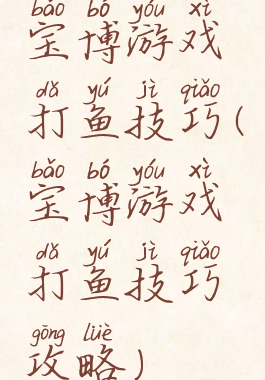 bǎo bó yóu xì
宝博游戏
dǎ yú jì qiǎo
打鱼技巧(
bǎo bó yóu xì
宝博游戏
dǎ yú jì qiǎo
打鱼技巧
gōng lüè
攻略)